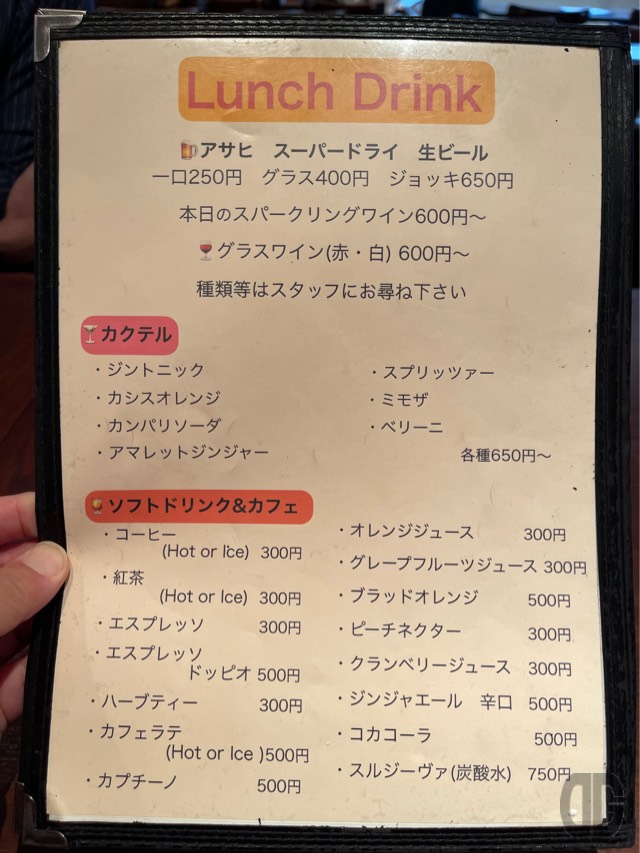 Lunch Drink
アサヒ　スーパードライ　生ビール
一口250円　グラス400円　ジョッキ650円
本日のスパークリングワイン600円～
グラスワイン(赤・白) 600円～
種類等はスタッフにお尋ね下さい
カクテル
・ジントニック
・カシスオレンジ
・カンパリソーダ
・アマレットジンジャー
・スプリッツァー
・ミモザ
・ベリーニ
各種650円～
ソフトドリンク&カフェ
・コーヒー
(Hot or Ice) 300円
・紅茶
(Hot or Ice) 300円
・エスプレッソ 300円
・エスプレッソ
ドッピオ 500円
・ハーブティー 300円
・カフェラテ
(Hot or Ice )500円
・カプチーノ 500円
・オレンジジュース 300円
・グレープフルーツジュース 300円
・ブラッドオレンジ 500円
・ピーチネクター 300円
・クランベリージュース 300円
・ジンジャエール　辛口 500円
・コカコーラ 500円
・スルジーヴァ(炭酸水) 750円